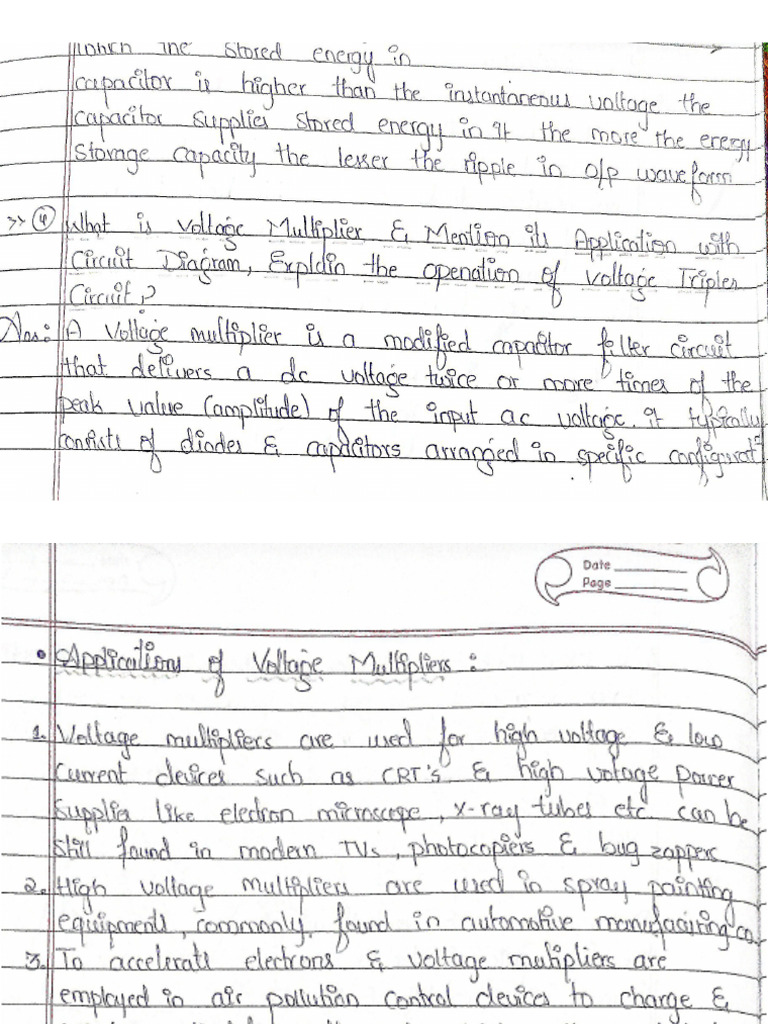 which the stored energy in
capacitor is higher than the instantaneous voltage the
capacitor supplies stored energy in it the more the energy
storage capacity the lesser the ripple in o/p waveform
>> 4 What is Voltage Multiplier & Mention its Application with
Circuit Diagram, Explain the operation of Voltage Tripler
Circuit?
Ans: A Voltage multiplier is a modified capacitor filter circuit
that delivers a dc voltage twice or more times of the
peak value (amplitude) of the input ac voltage. it typically
consists of diodes & capacitors arranged in specific configurat
Date
Page
• Applications of Voltage Multipliers :
1. Voltage multipliers are used for high voltage & low
current devices such as CRT's & high voltage power
supplies like electron microscope, x-ray tubes etc. can be
still found in modern TVs, photocopiers & bug zappers
2. High voltage multipliers are used in spray painting
equipments, commonly found in automotive manufacturing co.
3. To accelerate electrons & voltage multipliers are
employed in air pollution control devices to charge &